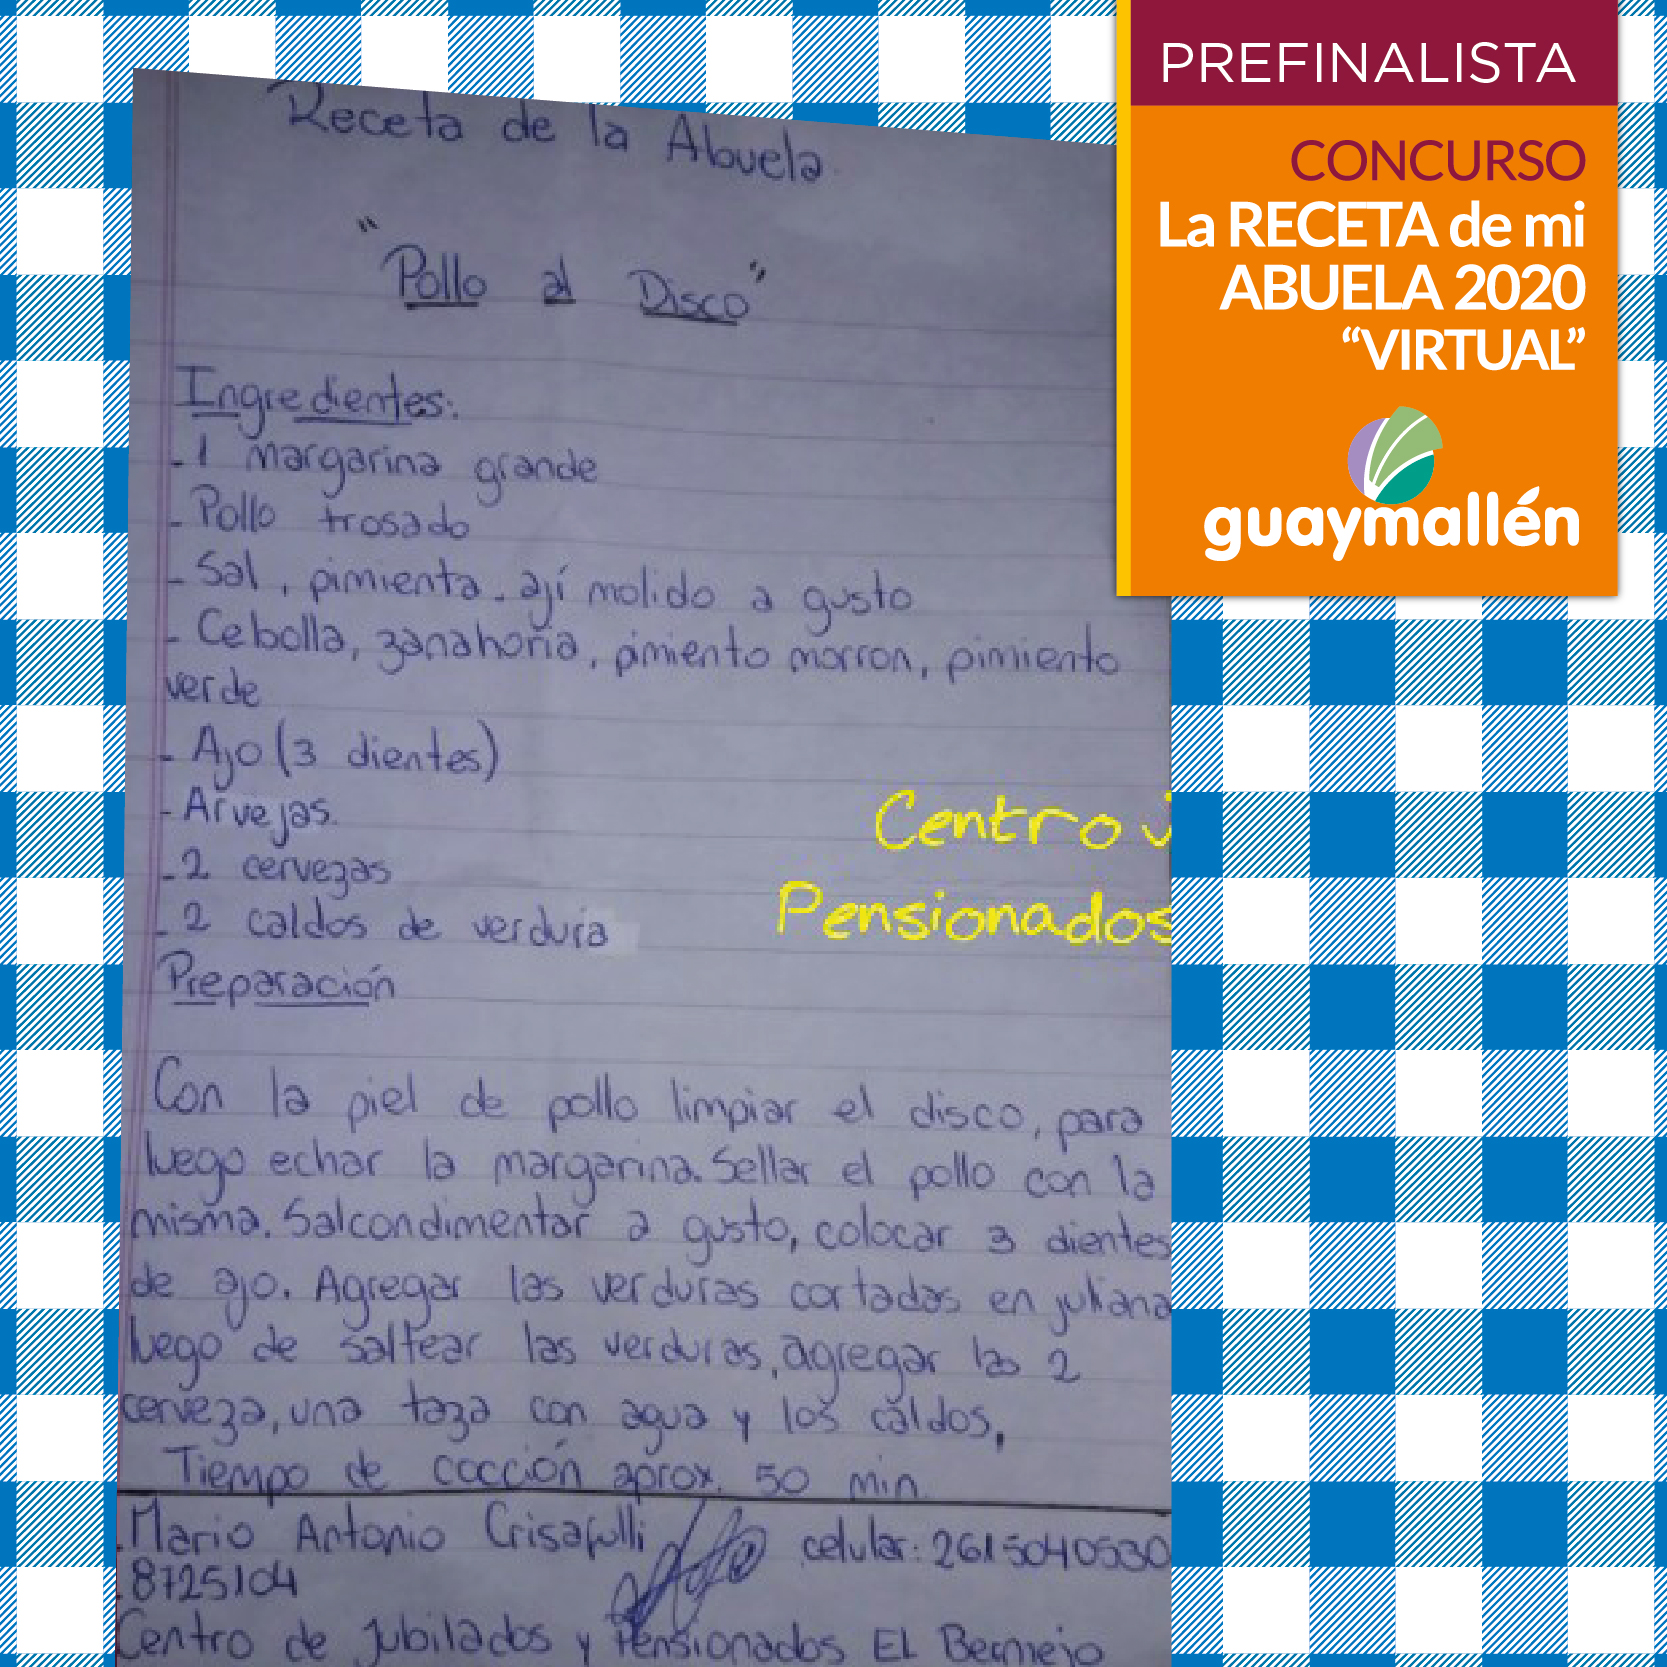 PREFINALISTA
CONCURSO
La RECETA de mi
ABUELA 2020
“VIRTUAL”
guaymallén
Receta de la Abuela
"Pollo al Disco"
Ingredientes:
- 1 margarina grande
- Pollo trosado
- Sal, pimienta. ají molido a gusto
- Cebolla, zanahoria, pimiento morron, pimiento
verde
- Ajo (3 dientes)
- Arvejas.
- 2 cervezas
- 2 caldos de verdura
Centro
Pensionados
Preparación
Con la piel de pollo limpiar el disco, para
luego echar la margarina. Sellar el pollo con la
misma. Salcondimentar a gusto, colocar 3 dientes
de ajo. Agregar las verduras cortadas en juliana
luego de saltear las verduras, agregar las 2
cerveza, una taza con agua y los caldos,
Tiempo de cocción aprox. 50 min.
Mario Antonio Crisafulli celular: 2615040530
8725104
Centro de Jubilados y Pensionados EL Bermejo